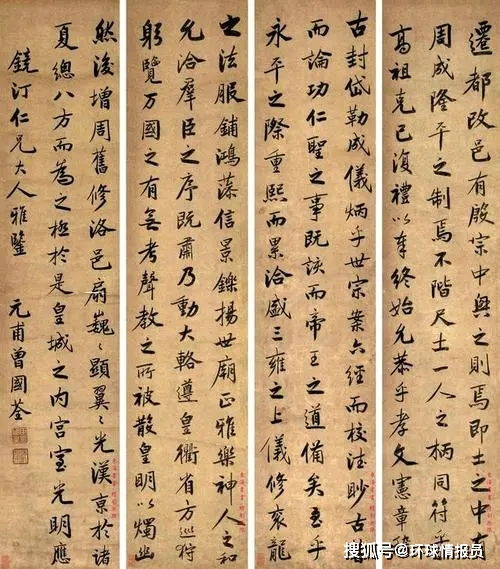 遷都改邑有殷宗中興之則焉即土之中有
周成隆平之制焉不階尺土一人之柄同符乎
高祖克己復禮以奉終始允恭乎孝文憲章稽
古封岱勒成儀炳乎世宗案六經而校法眇古昔
而論功仁聖之事既該而帝王之道備矣至乎
永平之際重熙而累洽盛三雍之上儀修袞龍
之法服鋪鴻藻信景鑠揚世廟正雅樂神人之和
允洽羣臣之序既肅乃動大輅遵皇衢省方巡狩
躬覽万國之有無考聲教之所被散皇明以燭幽
然後增周舊修洛邑扇巍〻顯翼〻光漢京於諸
夏總八方而為之極於是皇城之内宮室光明應
鏡汀仁兄大人雅鑒
元甫曾國荃
搜狐号@环球情报员